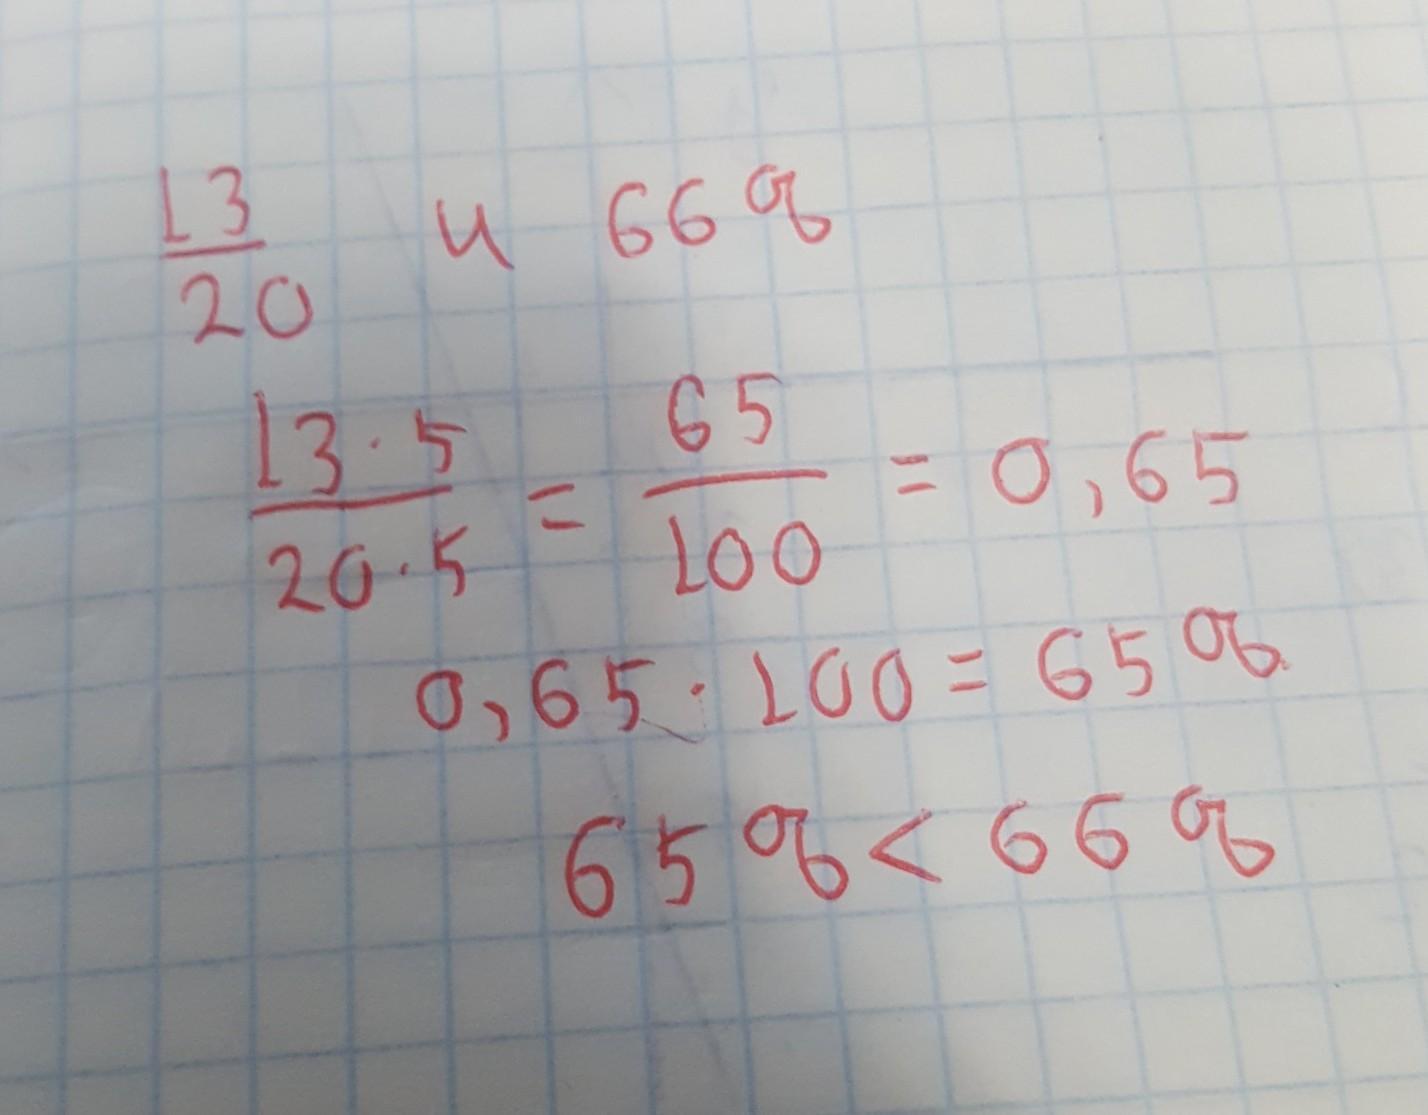 13/20 и 66%
13·5/20·5 = 65/100 = 0,65
0,65·100=65%
65%<66%